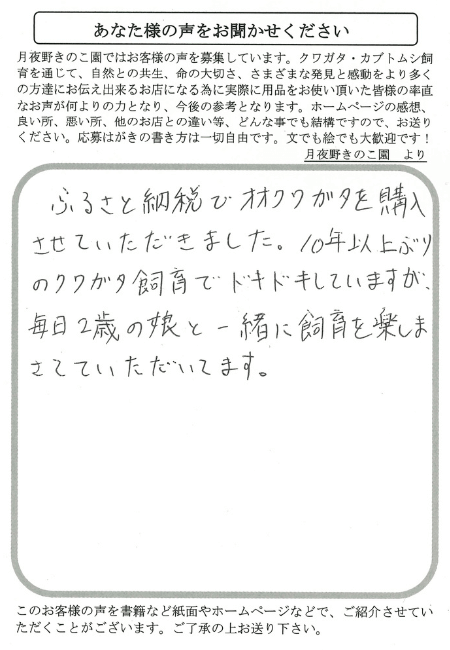 あなた様の声をお聞かせください
月夜野きのこ園ではお客様の声を募集しています。クワガタ・カブトムシ飼
育を通じて、自然との共生、命の大切さ、さまざまな発見と感動をより多く
の方達にお伝え出来るお店になる為に実際に用品をお使い頂いた皆様の率直
なお声が何よりの力となり、今後の参考となります。ホームページの感想、
良い所、悪い所、他のお店との違い等、どんな事でも結構ですので、お送り
ください。応募はがきの書き方は一切自由です。文でも絵でも大歓迎です！
月夜野きのこ園　より
ふるさと納税でオオクワガタを購入
させていただきました。10年以上ぶり
のクワガタ飼育でドキドキしていますが、
毎日2歳の娘と一緒に飼育を楽しま
さてていただいてます。
このお客様の声を書籍など紙面やホームページなどで、ご紹介させてい
ただくことがございます。ご了承の上お送り下さい。